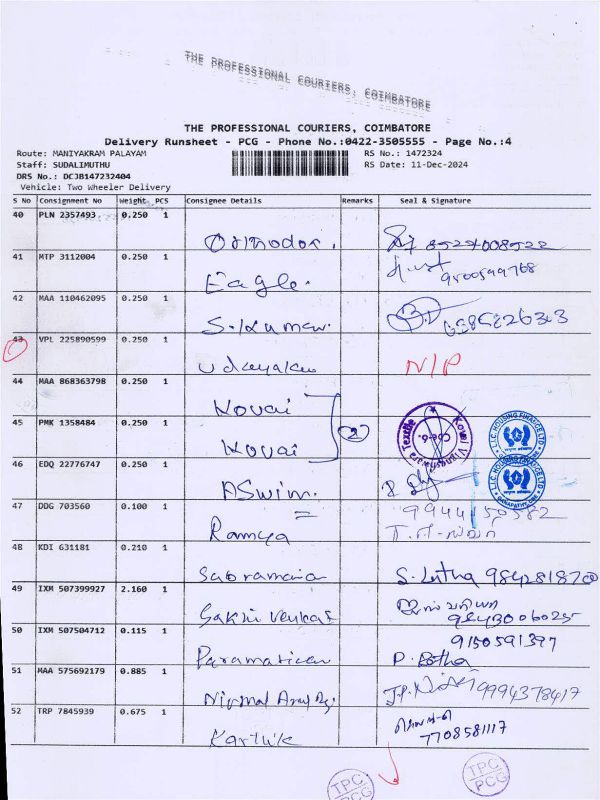 THE PROFESSIONAL COURIERS, COIMBATORE
THE PROFESSIONAL COURIERS, COIMBATORE
Delivery Runsheet - PCG - Phone No.:0422-3505555 - Page No.:4
Route: MANIYAKRAM PALAYAM RS No.: 1472324
Staff: SUDALIMUTHU RS Date: 11-Dec-2024
DRS No.: DCJB147232404
Vehicle: Two Wheeler Delivery
S No Consignment No Weight PCS Consignee Details Remarks Seal & Signature
40 PLN 2357493 0.250 1
Orthodox.
41 MTP 3112004 0.250 1
Eagle.
42 MAA 110462095 0.250 1
S.Kumar.
43 VPL 225890599 0.250 1
Udayakum N/P
44 MAA 868363798 0.250 1
Kovai
45 PMK 1358484 0.250 1 2
Kovai
Kovai Vignushwara Textile
Cbe-6.
LIC HOUSING FINANCE LTD
LIC HOUSING FINANCE LTD
GANAPATHY, CBE
46 EDQ 22776747 0.250 1
ASwim.
47 DDG 703560 0.100 1 9944150582
Ramya
48 KDI 631181 0.210 1
Subramania S. Latha
49 IXM 507399927 2.160 1
Sakthi Venkat 9843006025
50 IXM 507504712 0.115 1 9150591397
51 MAA 575692179 0.885 1
Nirmal 9994378417
52 TRP 7845939 0.675 1
Karthik 7708581117
TPC
PCG
TPC
PCG